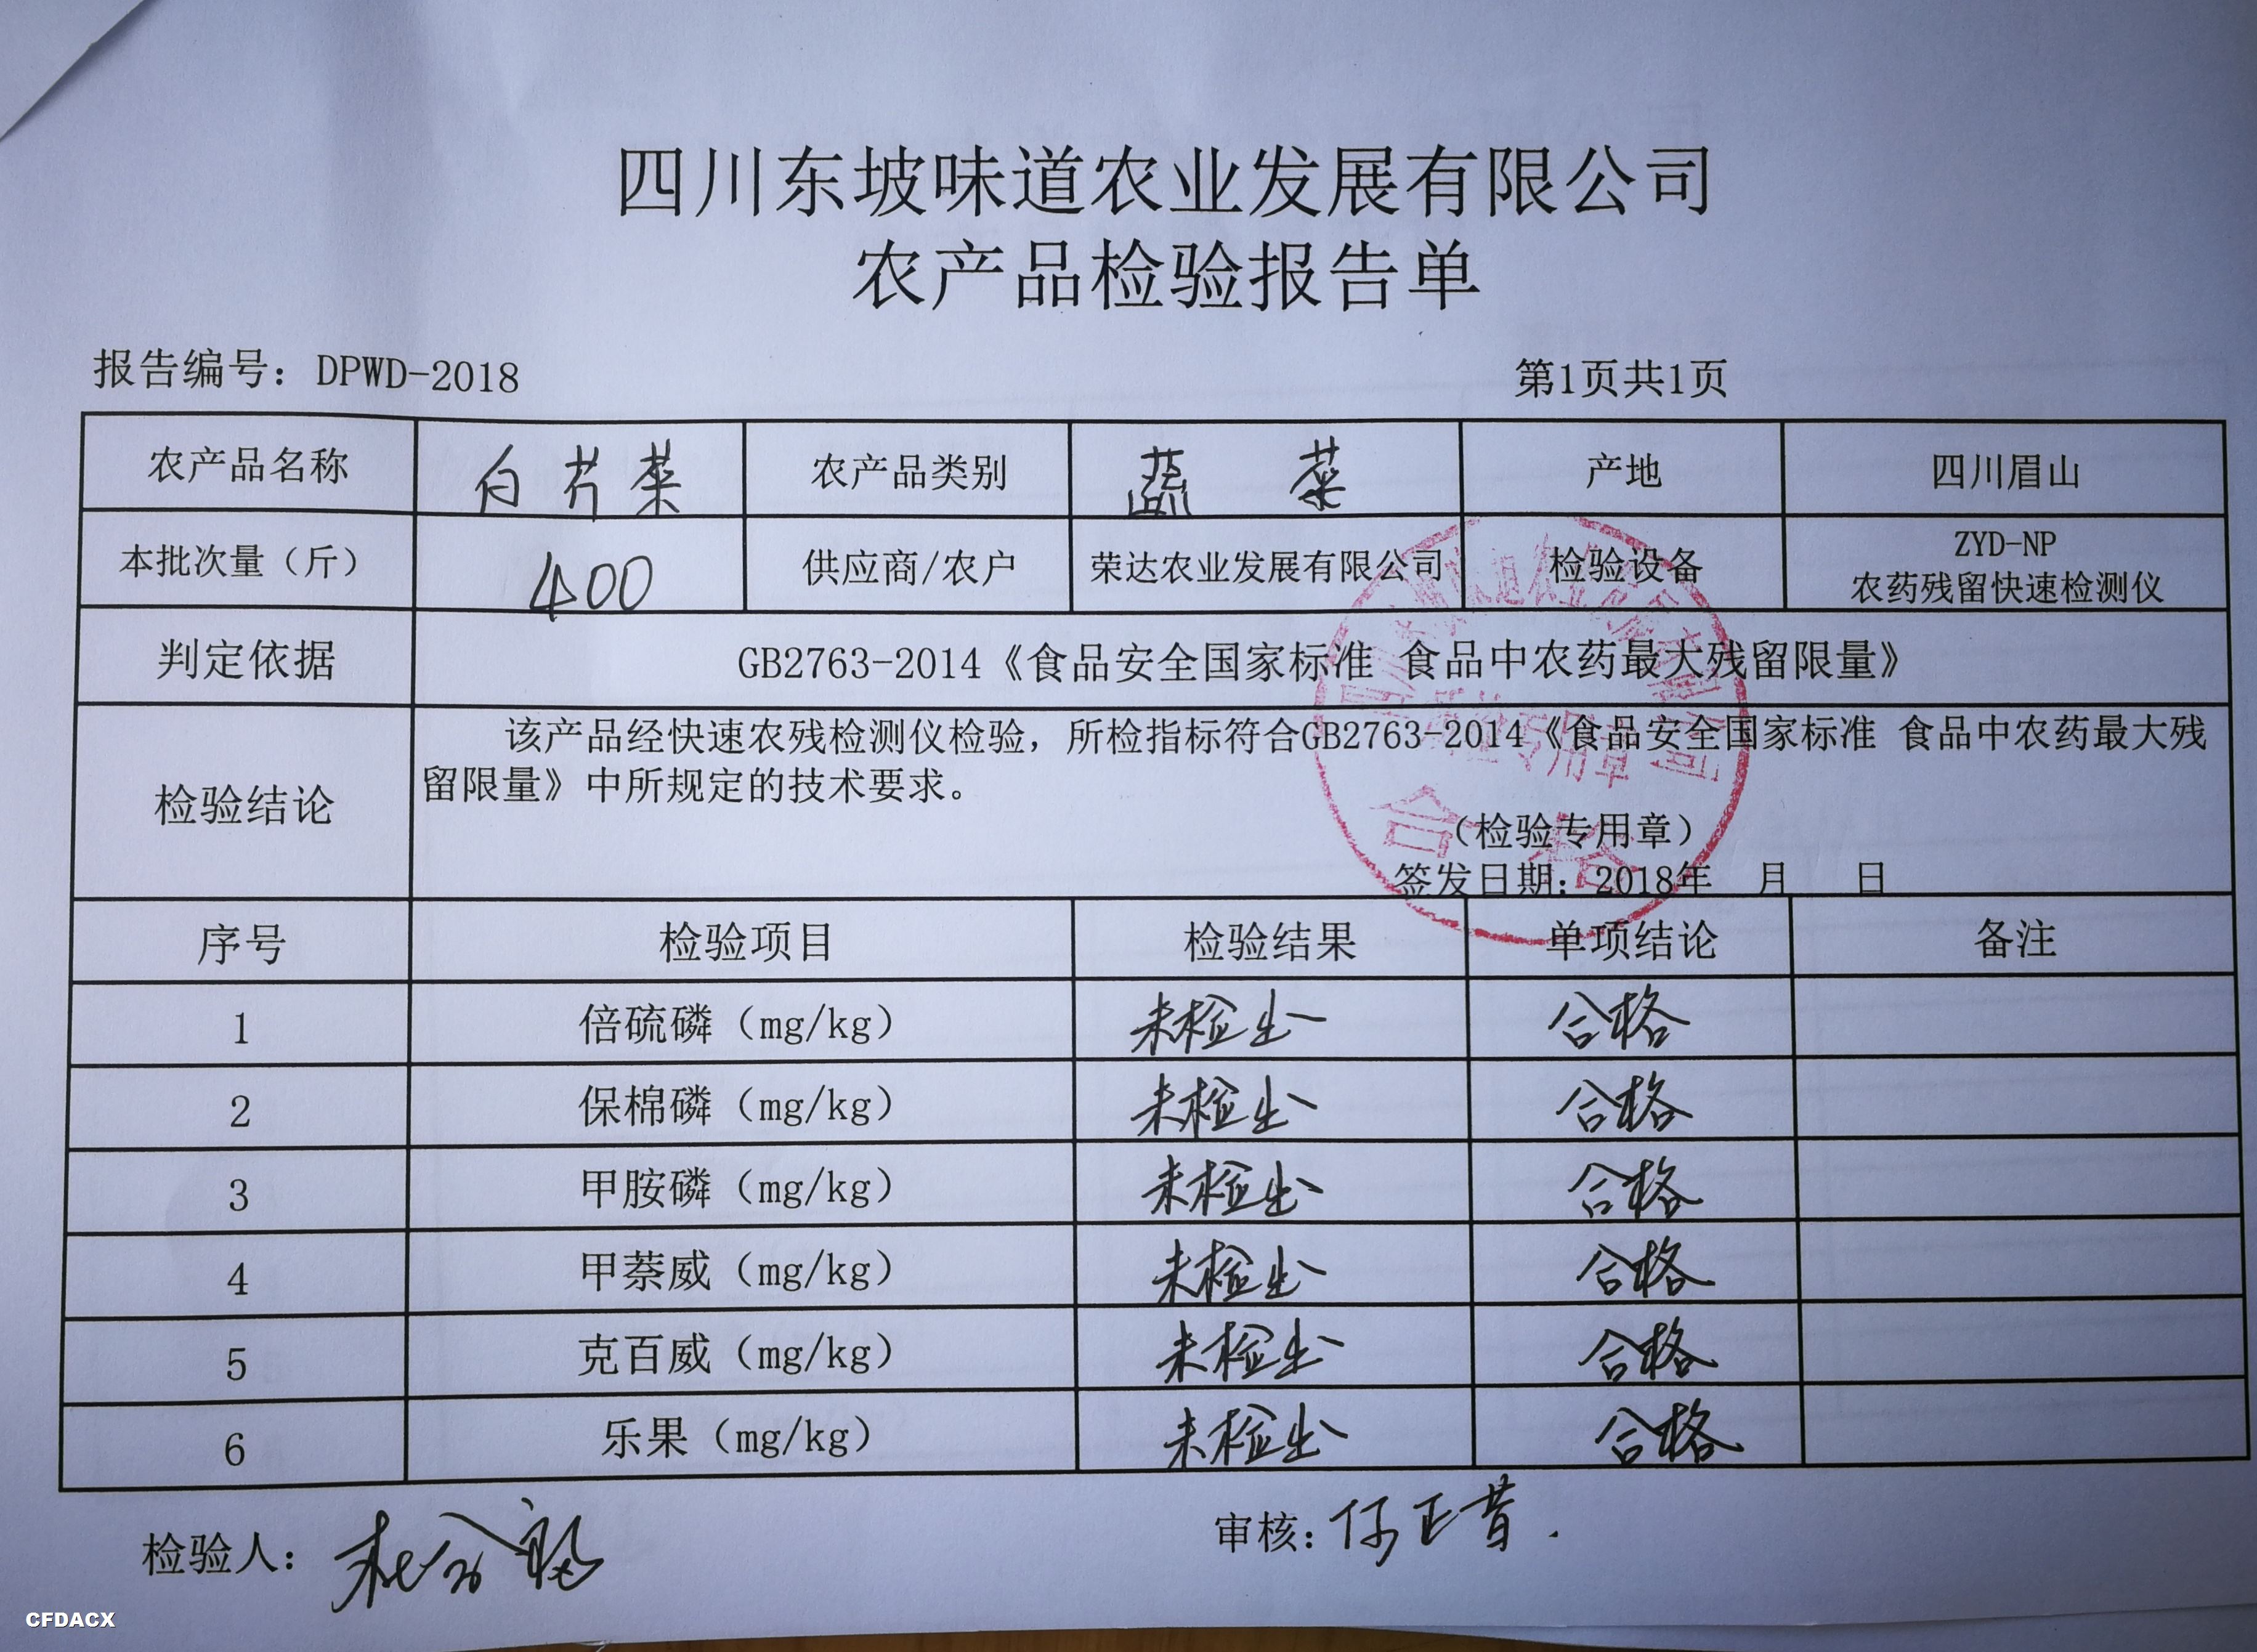 四川东坡味道农业发展有限公司
农产品检验报告单
报告编号：DPWD-2018 第1页共1页
农产品名称 白芹菜 农产品类别 蔬菜 产地 四川眉山
本批次量（斤） 400 供应商/农户 荣达农业发展有限公司 检验设备 ZYD-NP
农药残留快速检测仪
判定依据 GB2763-2014《食品安全国家标准 食品中农药最大残留限量》
检验结论 该产品经快速农残检测仪检验，所检指标符合GB2763-2014《食品安全国家标准 食品中农药最大残
留限量》中所规定的技术要求。
合格
（检验专用章）
签发日期：2018年 月 日
序号 检验项目 检验结果 单项结论 备注
1 倍硫磷（mg/kg） 未检出 合格
2 保棉磷（mg/kg） 未检出 合格
3 甲胺磷（mg/kg） 未检出 合格
4 甲萘威（mg/kg） 未检出 合格
5 克百威（mg/kg） 未检出 合格
6 乐果（mg/kg） 未检出 合格
检验人： 审核：
CFDACX